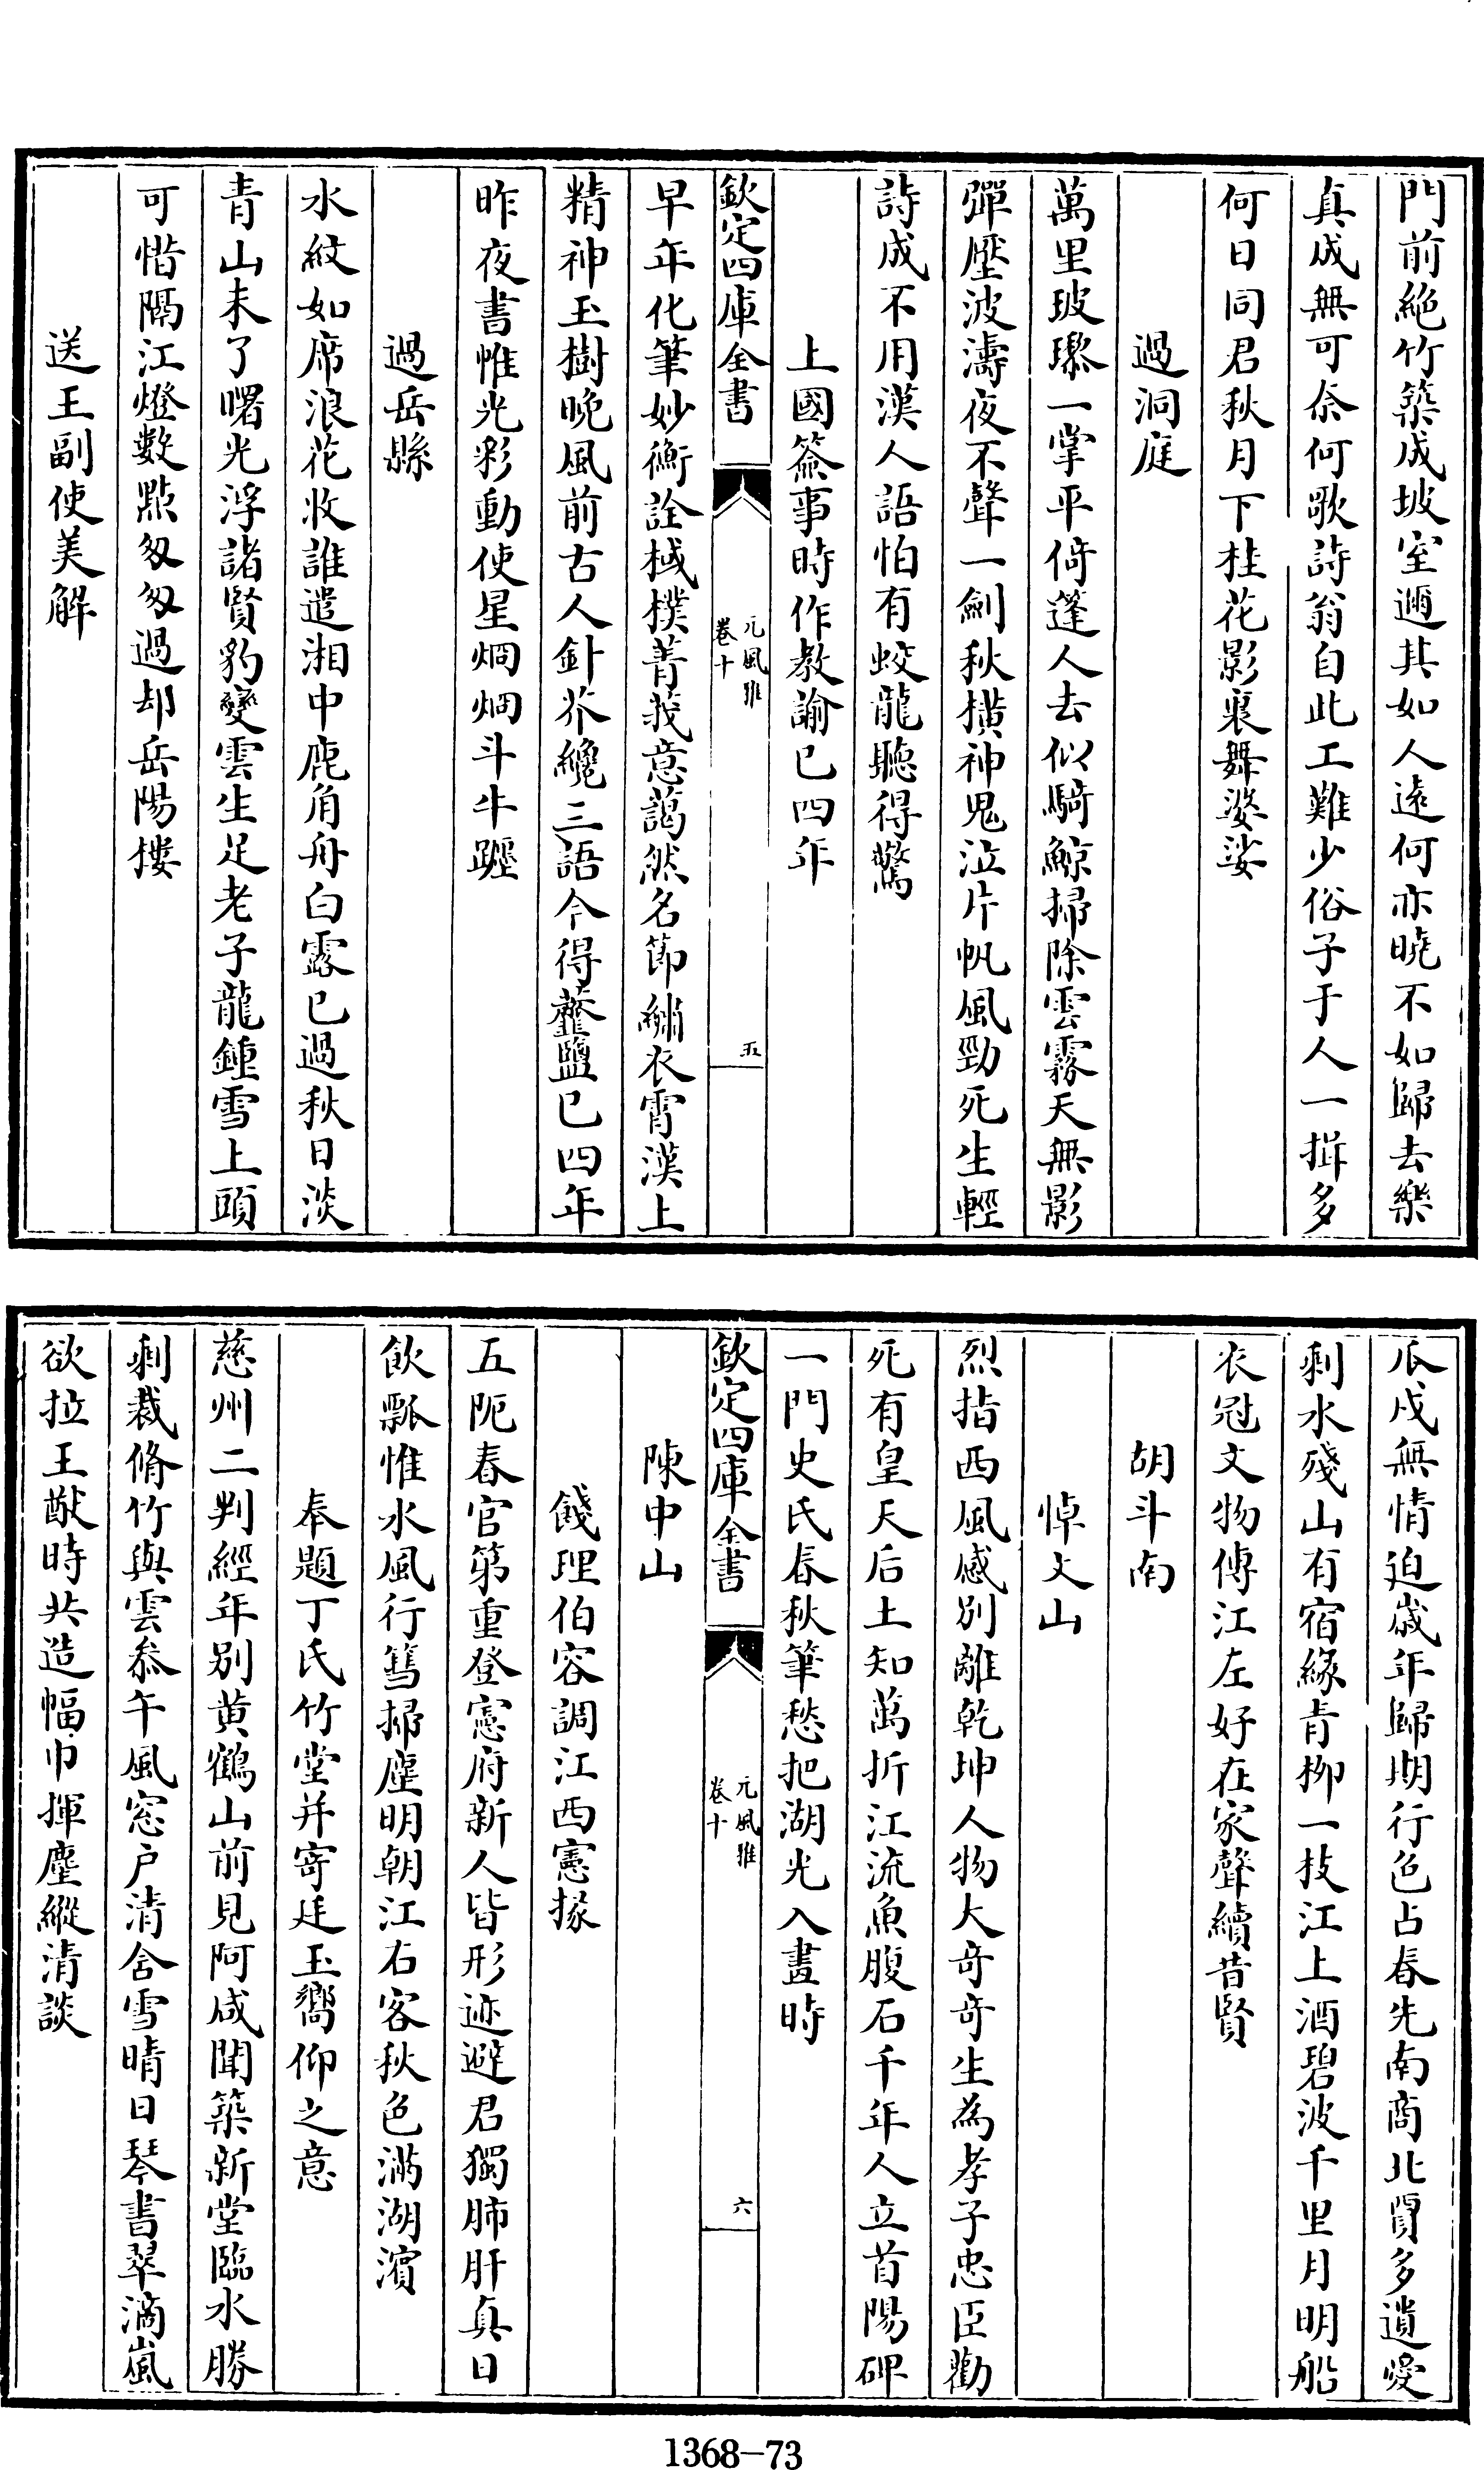 門前絶竹築成坡室邇其如人遠何亦曉不如歸去樂
真成無可奈何歌詩翁自此工難少俗子于人一揖多
何日同君秋月下桂花影裏舞婆娑
過洞庭
萬里玻瓈一掌平倚蓬人去似騎鯨掃除雲霧天無影
彈壓波濤夜不聲一劍秋横神鬼泣片帆風勁死生輕
詩成不用漢人語怕有蛟龍聽得驚
上國簽事時作教諭已四年
欽定四庫全書
元風雅
卷十
五
早年化筆妙衡詮棫樸菁莪意藹然名節繡衣霄漢上
精神玉樹晩風前古人針芥纔三語今得虀鹽已四年
昨夜書惟光彩動使星炯炯斗牛躔
過岳縣
水紋如席浪花收誰遣湘中鹿角舟白露已過秋日淡
青山未了曙光浮諸賢豹變雲生足老子龍鍾雪上頭
可惜隔江燈數點匆匆過却岳陽樓
送王副使美解
瓜戍無情迫歳年歸期行色占春先南商北賈多遺愛
剩水殘山有宿緣青柳一枝江上酒碧波千里月明船
衣冠文物傅江左好在家聲續昔賢
胡斗南
悼文山
烈指西風感别離乾坤人物大奇奇生為孝子忠臣勸
死有皇天后土知萬折江流魚腹石千年人立首陽碑
一門史氏春秋筆愁把湖光入畫時
欽定四庫全書
元風雅
卷十
六
陳中山
餞理伯容調江西憲掾
五阨春官第重登憲府新人皆形迹避君獨肺肝真日
飲瓢惟水風行篲掃塵明朝江右客秋色滿湖濱
奉題丁氏竹堂并寄廷玉嚮仰之意
慈州二判經年别黄鶴山前見阿咸聞築新堂臨水勝
剩裁脩竹與雲叅午風窓户清含雪晴日琴書翠滴嵐
欲拉王猷時共造幅巾揮麈縱清談
1368-73